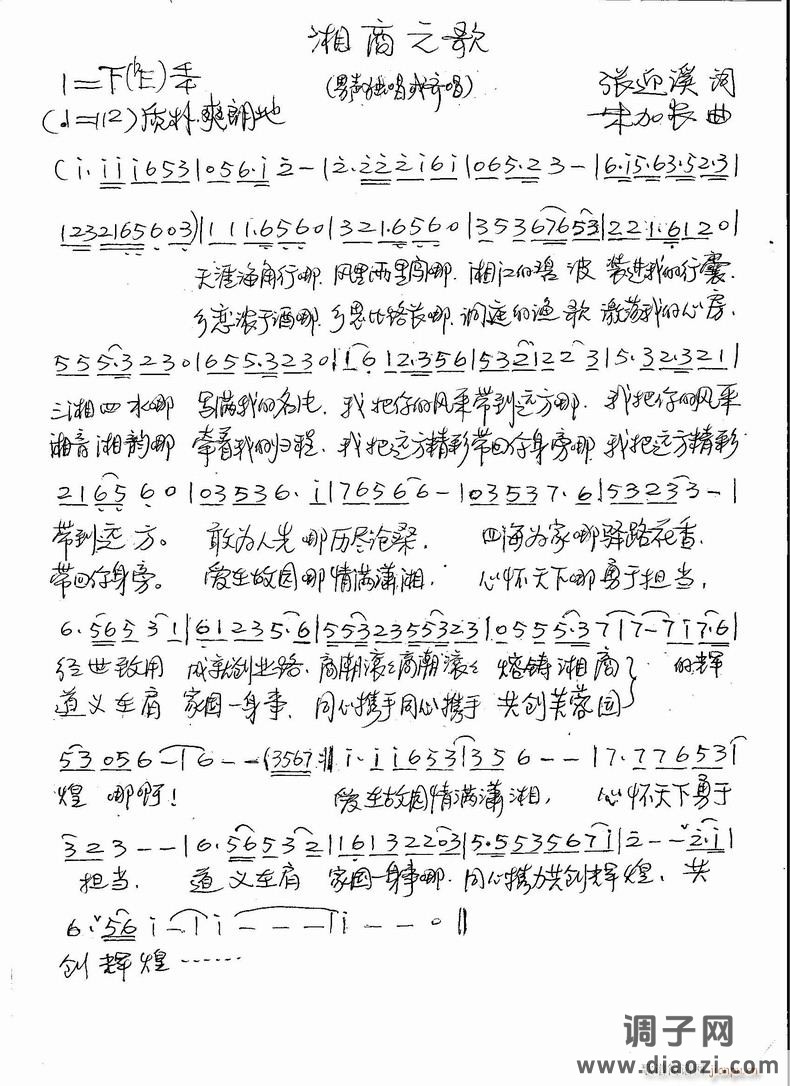 湘商之歌
(男声独唱或齐唱)
张迎溪 词
加农 曲
(♩=112) 质朴.爽朗地
(i·iii653|056·i2-|2·222i6i|065·23-|6·i5·63·52·3|
1232165603)|111·6560|321·6560|353676553|221·6120|
天涯海角行哪.风里雨里闯哪.湘江的碧波 装进我的行囊.
乡恋浓于酒哪.乡思比路长哪.洞庭的渔歌 激荡我的心房.
555·3230|655·3230|1612·356|532122 3|5·32·321|
三湘四水哪 写满我的名片.我把你的风采带到远方哪.我把你的风采
湘音湘韵哪 牵着我的归程.我把远方精彩带回你身旁哪.我把远方精彩
216560|03536·i|76566-|03537·6|53233-|
带到远方。 敢为人先哪历尽沧桑. 四海为家哪驿路花香.
带回你身旁。 爱在故园哪情满潇湘. 心怀天下哪勇于担当,
6·56531|61235·6|5532355323|0555·37|7-717·6|
经世致用 成就创业路.商潮滚滚商潮滚滚 熔铸湘商 的辉
道义在肩 家国一身事.同心携手同心携手 共创芙蓉国
53056-|6--(3567:‖i·ii653|356--|7·77653|
煌 哪啊! 爱在故园情满潇湘, 心怀天下勇于
323--|6·56532|16132203|5·553567i|2--2·i|
担当. 道义在肩 家国一身事哪.同心携力共创辉煌、共
6·56i-|i---|i--0‖
创辉煌……
调子网
www.diaozi.com